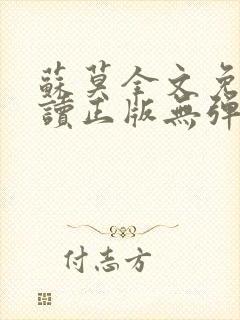 蘇莫全文免
讀正版無彈
付志方